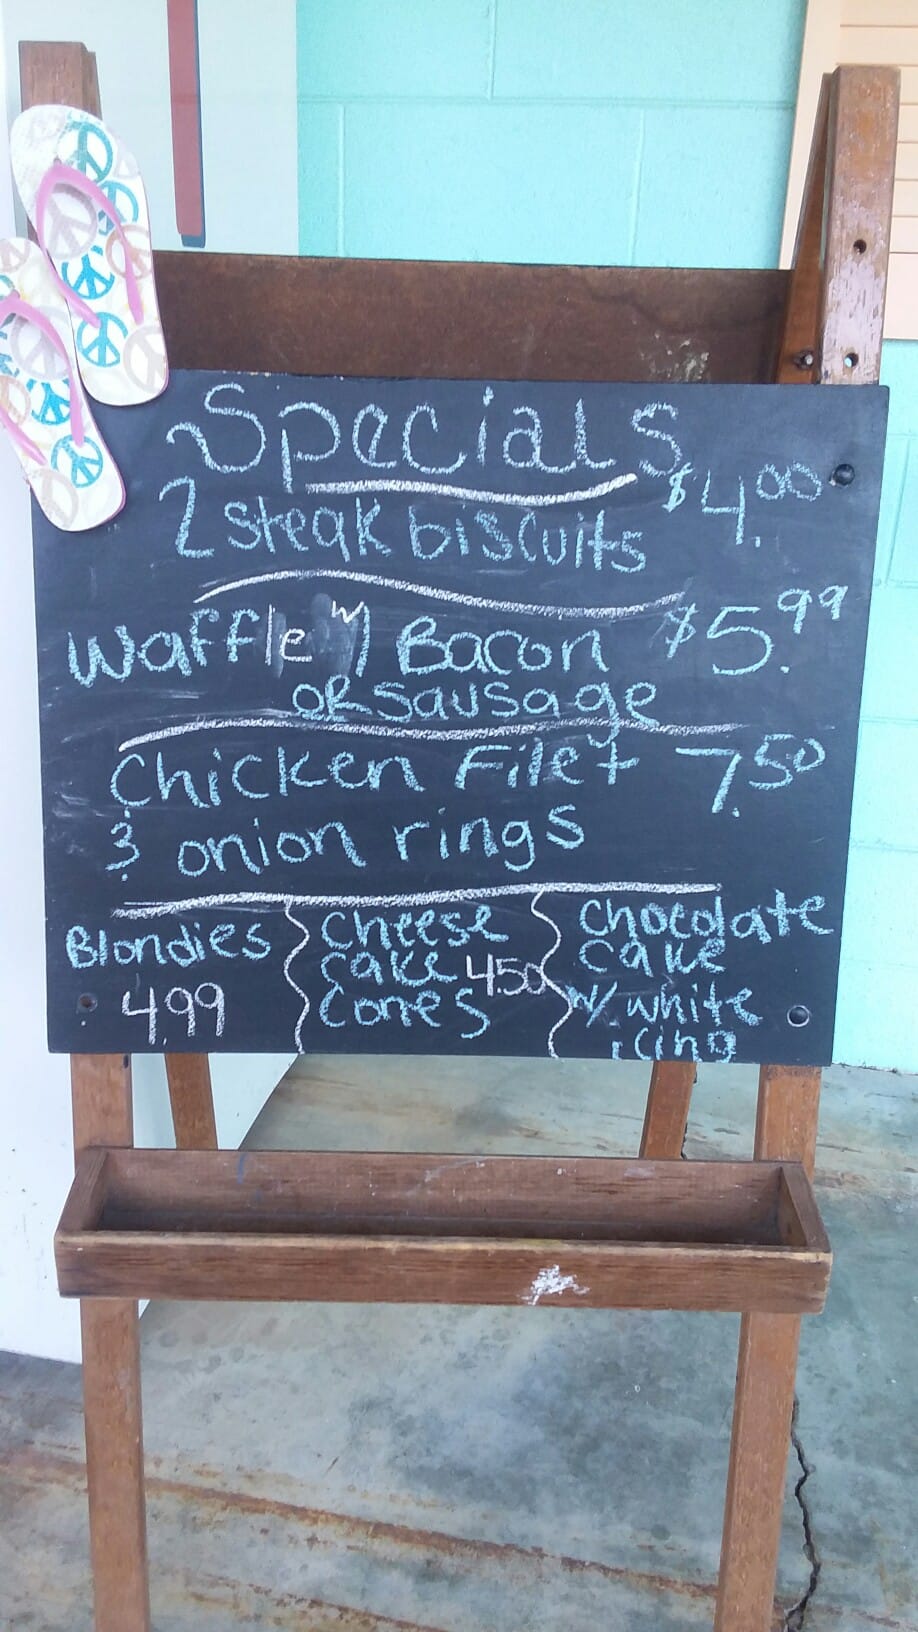 Specials
2 steak biscuits $4.00
Waffle w/ Bacon $5.99
or sausage
Chicken Filet 7.50
& onion rings
Blondies
4.99
Cheese
cake 4.50
Cones
Chocolate
cake
w/ white
icing